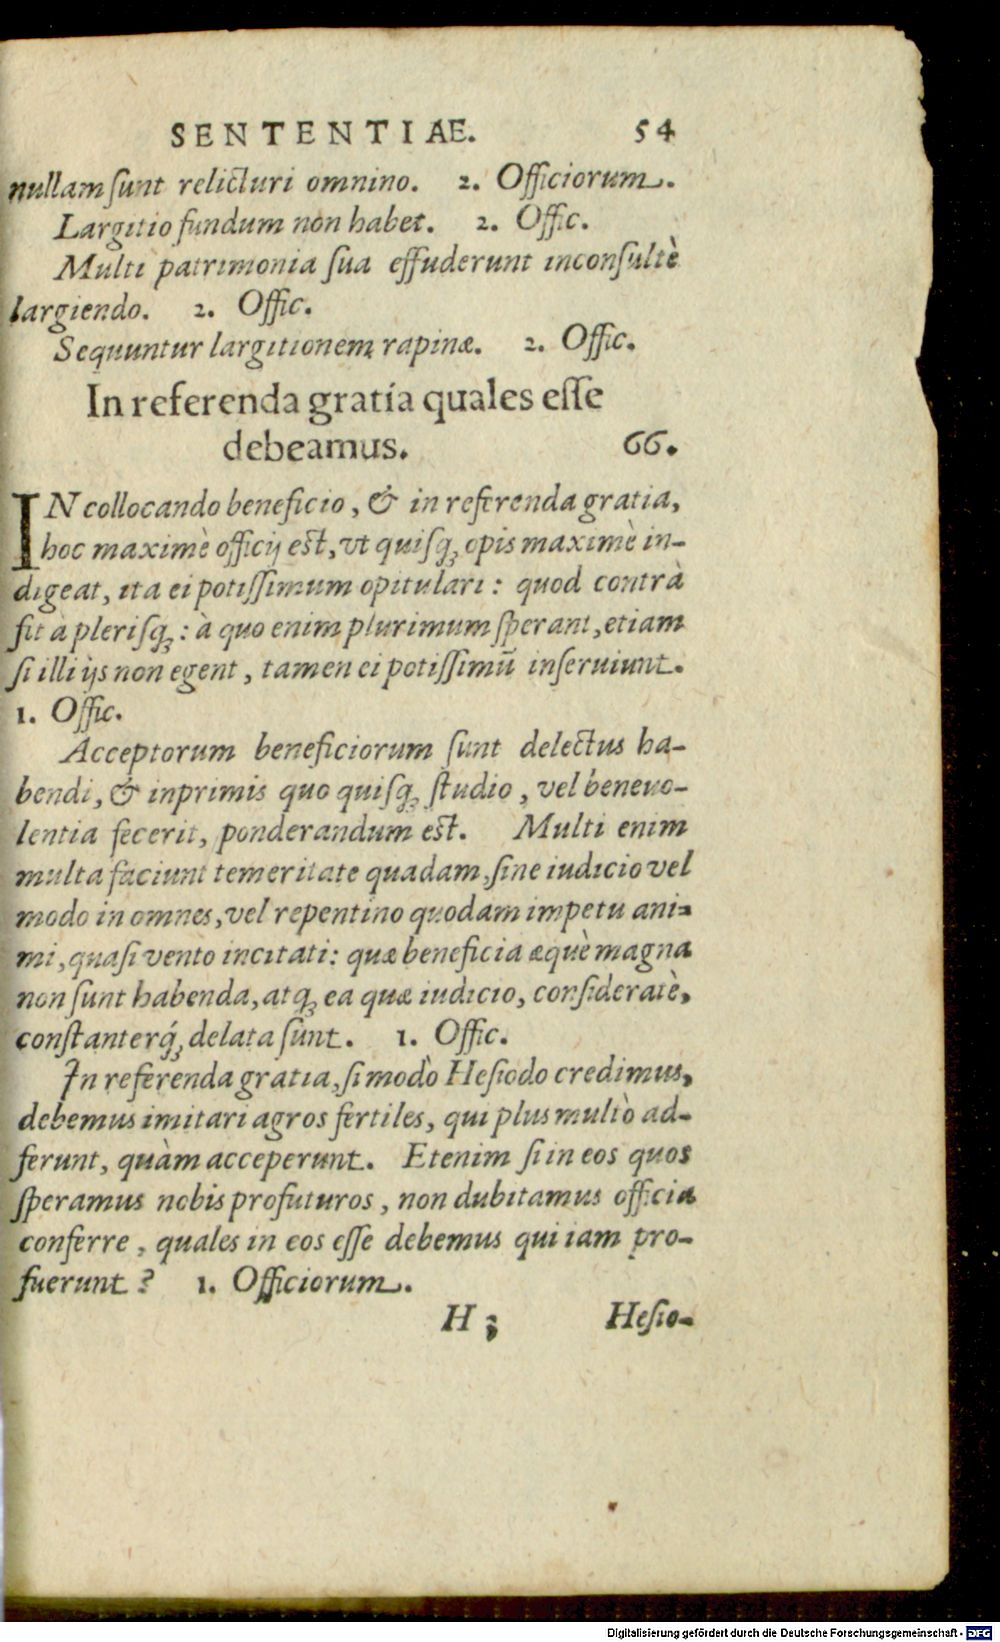 SENTENTIAE. 54
nullam ſunt relicturi omnino. 2. Officiorum.
Largitio fundum non habet. 2. Offic.
Multi patrimonia ſua effuderunt inconſultè
largiendo. 2. Offic.
Sequuntur largitionem rapinæ. 2. Offic.
In referenda gratia quales eſſe
debeamus. 66.
IN collocando beneficio, & in referenda gratia,
hoc maximè officij eſt, vt quiſq; opis maximè in-
digeat, ita ei potiſſimum opitulari: quod contrà
fit à pleriſq;: à quo enim plurimum ſperant, etiam
ſi illi ijs non egent, tamen ei potiſſimũ inſeruiunt.
1. Offic.
Acceptorum beneficiorum ſunt delectus ha-
bendi, & inprimis quo quiſq; ſtudio, vel beneuo-
lentia fecerit, ponderandum eſt. Multi enim
multa faciunt temeritate quadam, ſine iudicio vel
modo in omnes, vel repentino quodam impetu ani-
mi, quaſi vento incitati: quæ beneficia æquè magna
non ſunt habenda, atq; ea quæ iudicio, conſideratè,
conſtanterq́; delata ſunt. 1. Offic.
In referenda gratia, ſi modò Heſiodo credimus,
debemus imitari agros fertiles, qui plus multò ad-
ferunt, quàm acceperunt. Etenim ſi in eos quos
ſperamus nobis profuturos, non dubitamus officia
conferre, quales in eos eſſe debemus qui iam pro-
fuerunt? 1. Officiorum.
H ; Heſio-
Digitalisierung gefördert durch die Deutsche Forschungsgemeinschaft - DFG